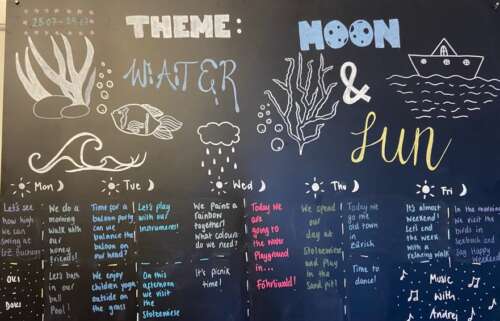 THEME: MOON
WATER & SUN
Mon Tue Wed Thu Fri
Let's see
how high
we can
swing at
We do a
morning
walk with
our
nurney
friends!
Time for a
balloon party,
can we
balance the
balloon on
our head?
Let's play
with our
instruments!
We paint a
rainbow
together!
What colours
do we need?
Today we
are
going to
the water
Playground
in...
We spend
our
day at
Stolzewiese
and Play
in the
Sand pit!
Today we
go the
old town
in
Zürich
It's almost
weekend!
Let's end
the week
with a
relaxing walk
In the morning
we visit the
birds in
Seebach and
Say Happy
Weekend
Let's bath
in our
ball
Pool!
We enjoy
children yoga
outside on
the grass
On this
afternoon
we visit
the
Stolzewiese
It's picnic
time!
Time to
dance!
Music
With
Andrej